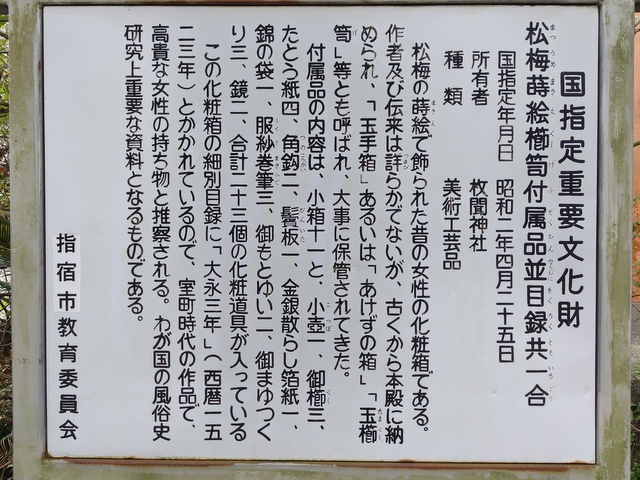 国指定重要文化財
松梅蒔絵櫛笥付属品並目録共一合
国指定年月日　昭和二年四月二十五日
所有者　枚聞神社
種類　美術工芸品
松梅の蒔絵で飾られた昔の女性の化粧箱である。
作者及び伝来は詳らかでないが、古くから本殿に納
められ、「玉手箱」あるいは「あけずの箱」「玉櫛
笥」等とも呼ばれ、大事に保管されてきた。
付属品の内容は、小箱十一と、小壺一、御櫛三、
たとう紙四、角鈎二、鬂板一、金銀散らし箔紙一、
錦の袋一、服紗巻筆三、御もとゆい二、御まゆつく
り三、鏡二、合計二十三個の化粧道具が入っている
この化粧箱の細別目録に「大永三年」（西暦一五
二三年）とかかれているので、室町時代の作品で、
高貴な女性の持ち物と推察される。わが国の風俗史
研究上重要な資料となるものである。
指宿市教育委員会